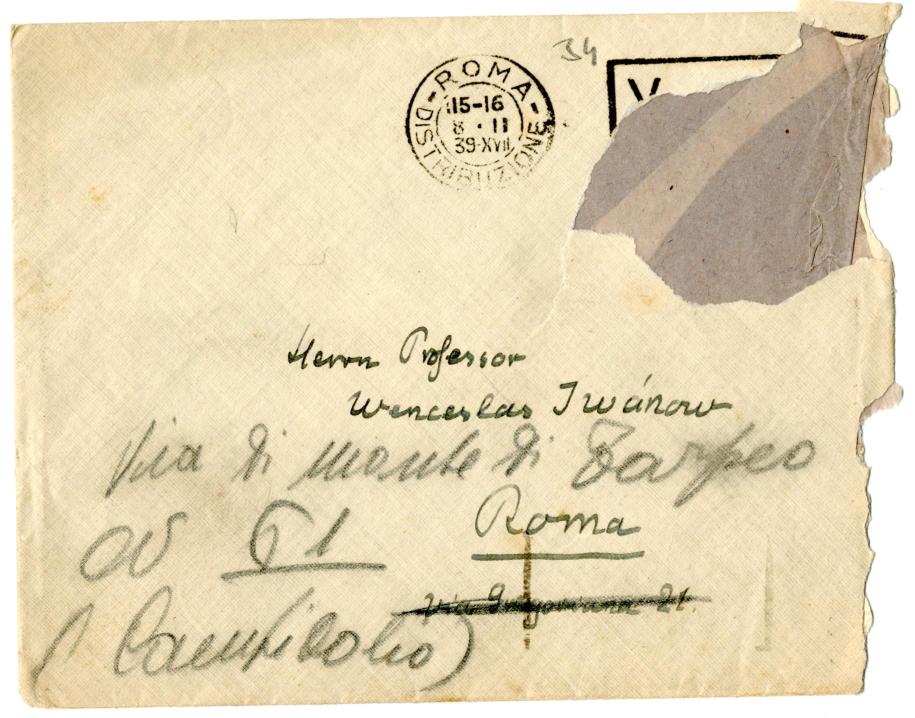 34
ROMA
15-16
8 · II
39-XVII
DISTRIBUZIONE
V
Herrn Professor
Wenceslas Iwánow
Via di Monte di Tarpeo
61
Roma
Via Gregoriana 21.
(Campidolio)